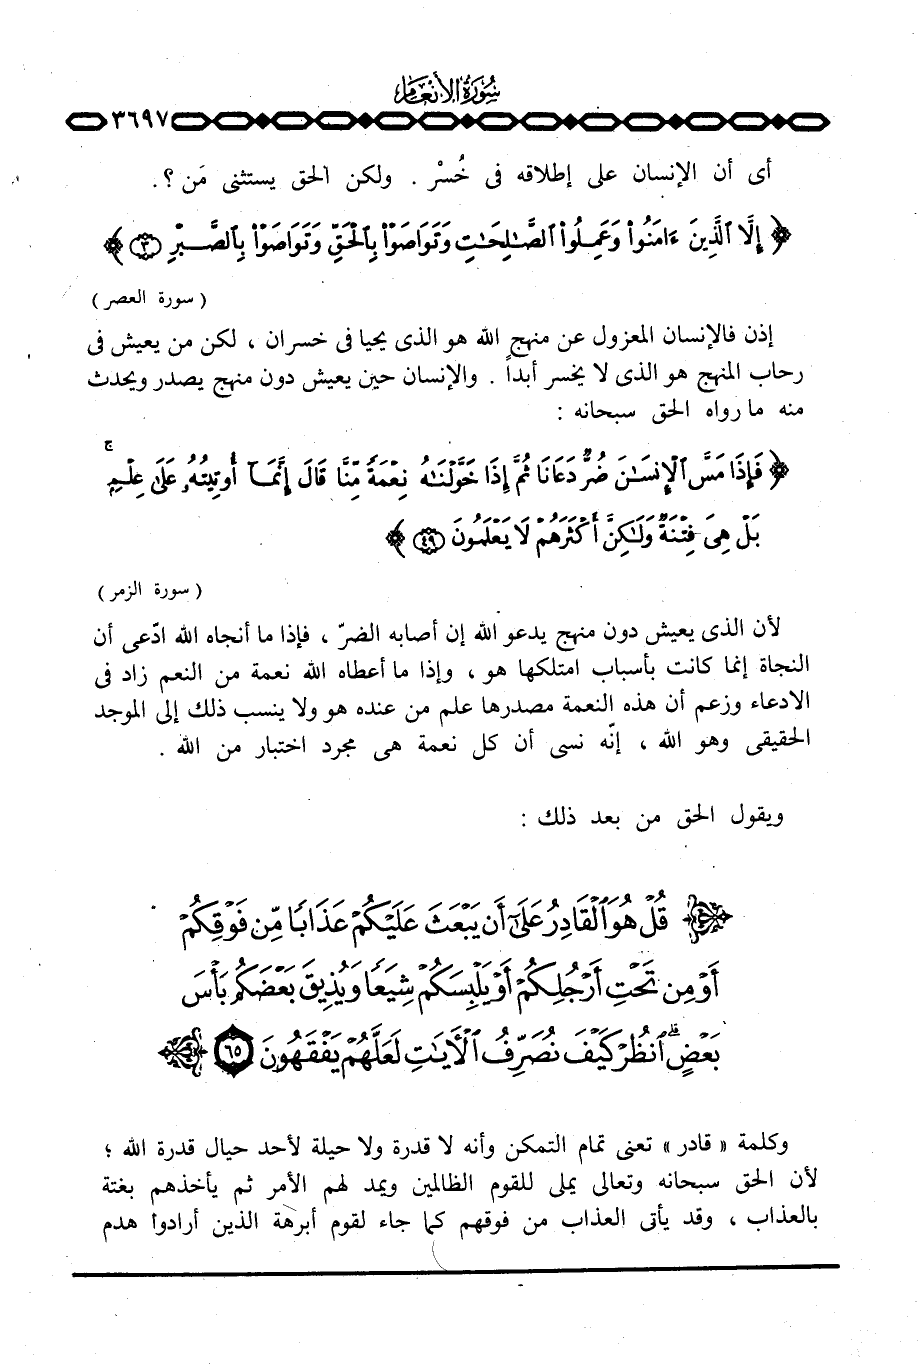 سورة الأنعام
٣٦٩٧
أى أن الإنسان على إطلاقه فى خُسْر . ولكن الحق يستثنى مَن ؟ .
﴿ إِلَّا ٱلَّذِينَ ءَامَنُوا۟ وَعَمِلُوا۟ ٱلصَّـٰلِحَـٰتِ وَتَوَاصَوْا۟ بِٱلْحَقِّ وَتَوَاصَوْا۟ بِٱلصَّبْرِ ٣ ﴾
( سورة العصر )
إذن فالإنسان المعزول عن منهج الله هو الذى يحيا فى خسران ، لكن من يعيش فى
رحاب المنهج هو الذى لا يخسر أبداً . والإنسان حين يعيش دون منهج يصدر ويحدث
منه ما رواه الحق سبحانه :
﴿ فَإِذَا مَسَّ ٱلْإِنسَـٰنَ ضُرٌّ دَعَانَا ثُمَّ إِذَا خَوَّلْنَـٰهُ نِعْمَةً مِّنَّا قَالَ إِنَّمَآ أُوتِيتُهُۥ عَلَىٰ عِلْمٍۭ ۚ
بَلْ هِىَ فِتْنَةٌ وَلَـٰكِنَّ أَكْثَرَهُمْ لَا يَعْلَمُونَ ٤٩ ﴾
( سورة الزمر )
لأن الذى يعيش دون منهج يدعو الله إن أصابه الضرّ ، فإذا ما أنجاه الله ادّعى أن
النجاة إنما كانت بأسباب امتلكها هو ، وإذا ما أعطاه الله نعمة من النعم زاد فى
الادعاء وزعم أن هذه النعمة مصدرها علم من عنده هو ولا ينسب ذلك إلى الموجد
الحقيقى وهو الله ، إنّه نسى أن كل نعمة هى مجرد اختبار من الله .
ويقول الحق من بعد ذلك :
﴿ قُلْ هُوَ ٱلْقَادِرُ عَلَىٰٓ أَن يَبْعَثَ عَلَيْكُمْ عَذَابًا مِّن فَوْقِكُمْ
أَوْ مِن تَحْتِ أَرْجُلِكُمْ أَوْ يَلْبِسَكُمْ شِيَعًا وَيُذِيقَ بَعْضَكُم بَأْسَ
بَعْضٍ ۗ ٱنظُرْ كَيْفَ نُصَرِّفُ ٱلْـَٔايَـٰتِ لَعَلَّهُمْ يَفْقَهُونَ ٦٥ ﴾
وكلمة « قادر » تعنى تمام التمكن وأنه لا قدرة ولا حيلة لأحد حيال قدرة الله ؛
لأن الحق سبحانه وتعالى يملى للقوم الظالمين ويمد لهم الأمر ثم يأخذهم بغتة
بالعذاب ، وقد يأتى العذاب من فوقهم كما جاء لقوم أبرهة الذين أرادوا هدم